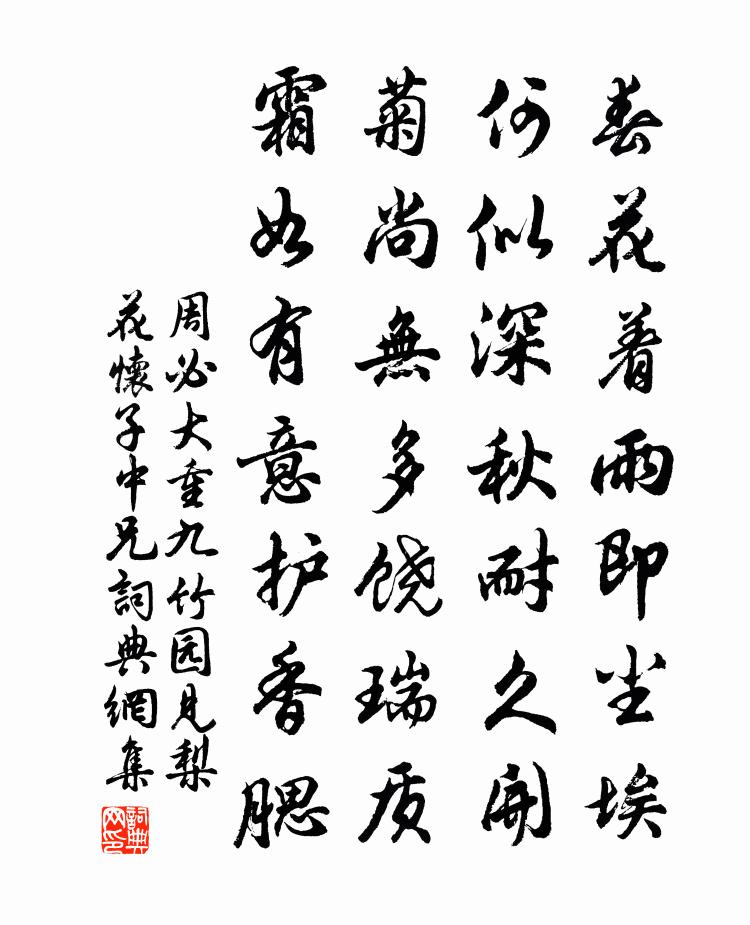 春花着雨即尘埃
何似深秋耐久開
菊尚無多饶瑞质
霜如有意护香腮
周必大重九竹园见梨
花懷子中兄詞典網集
詞典网印